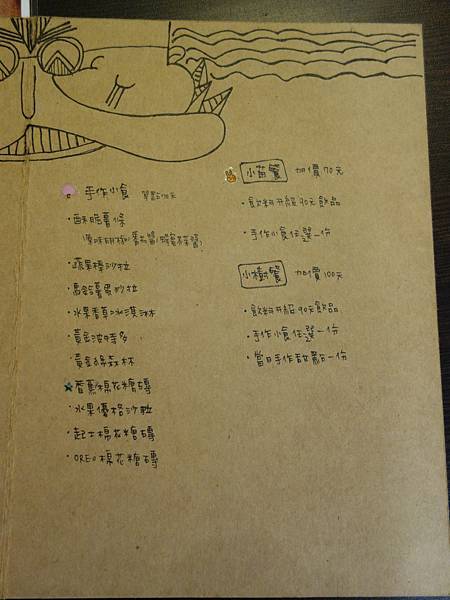 手作小食 單點70元
·酥脆薯條
·蘋果棒沙拉
·馬鈴薯蛋沙拉
·水果香草冰淇淋
·黃金波特多
·黃金綿森杯
香蕉棉花糖磚
·水果優格沙拉
·起士棉花糖磚
·OREO棉花糖磚
小苗餐 加價70元
·飲料升級90元飲品
·手作小食任選一份
小樹餐 加價100元
·飲料升級90元飲品
·手作小食任選一份
·當日手作甜點一份